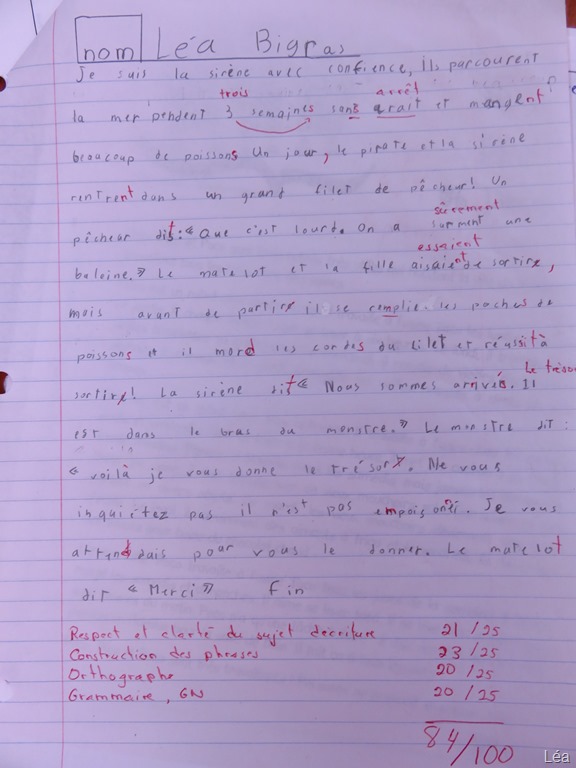 nom Léa Bigras
Je suis la sirène avec confience, ils parcourent
trois arrêt
la mer pendent 3 semaines sans arait et mangent
beaucoup de poissons Un jour, le pirate et la sirène
rentrent dans un grand filet de pêcheur! Un
sûrement
pêcheur dit: « Que c'est lourd. On a surment une
essaient
baleine. » Le matelot et la fille aisaient de sortire,
mais avant de partire il se remplie les poches de
poissons et il mord les cordes du filet et réussit à
Le trésor
sortire! La sirène dit « Nous sommes arrivés. Il
est dans le bras du monstre. » Le monstre dit:
« voilà je vous donne le trésor. Ne vous
inquiétez pas il n'est pas empoisonné. Je vous
attendais pour vous le donner. Le matelot
dit « Merci » Fin
Respect et clarté du sujet décriture 21 /25
Construction des phrases 23 /25
Orthographe 20 /25
Grammaire, GN 20 /25
84/100
Léa